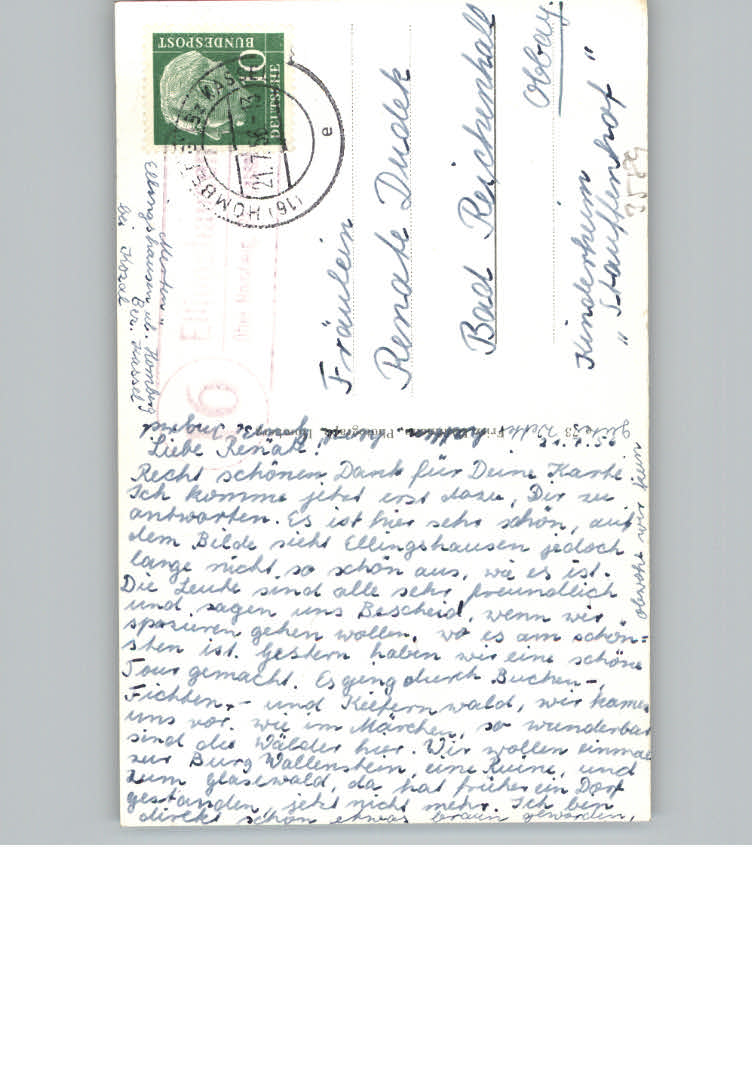 21.7.56
Liebe Renate!
Recht schönen Dank für Deine Karte.
Ich komme jetzt erst dazu, Dir zu
antworten. Es ist hier sehr schön, auf
dem Bilde sieht Ellingshausen jedoch
lange nicht so schön aus, wie es ist.
Die Leute sind alle sehr freundlich
und sagen uns Bescheid, wenn wir
spazieren gehen wollen, wo es am schön=
sten ist. Gestern haben wir eine schöne
Tour gemacht. Es ging durch Buchen-,
Fichten- und Kiefernwald, wir kamen
uns vor wie im Märchen, so wunderbar
sind die Wälder hier. Wir wollen einmal
zur Burg Wallenstein, eine Ruine, und
zum Glasewald, da hat früher ein Dorf
gestanden, jetzt nicht mehr. Ich bin
direkt schön etwas braun geworden,
obwohl wir kein
Gutes Wetter
Fräulein
Renate Dudek
Bad Reichenhall
Obbay.
Kinderheim
"Stauffenhof"
3589
Ellingshausen üb. Homberg
Bez. Kassel
bei Horch
DEUTSCHE
BUNDESPOST
10
(16) HOMBERG
21.7.56
e
16